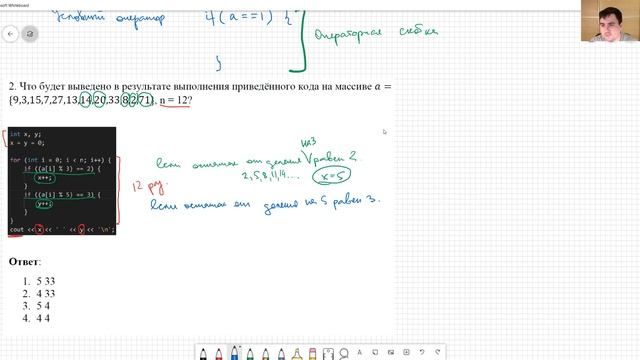 Microsoft Whiteboard
Условный оператор
if (a==1) {
}
Операторная скобка
2. Что будет выведено в результате выполнения приведённого кода на массиве a =
{9,3,15,7,27,13,14,20,33,8,2,71}, n = 12?
int x, y;
x = y = 0;
for (int i = 0; i < n; i++) {
if ((a[i] % 3) == 2) {
x++;
}
if ((a[i] % 5) == 3) {
y++;
}
}
cout << x << ' ' << y << '\n';
12 раз.
на 3
если остаток от деления равен 2.
2,5,8,11,14....
x=5
если остаток от деления на 5 равен 3.
Ответ:
1. 5 33
2. 4 33
3. 5 4
4. 4 4